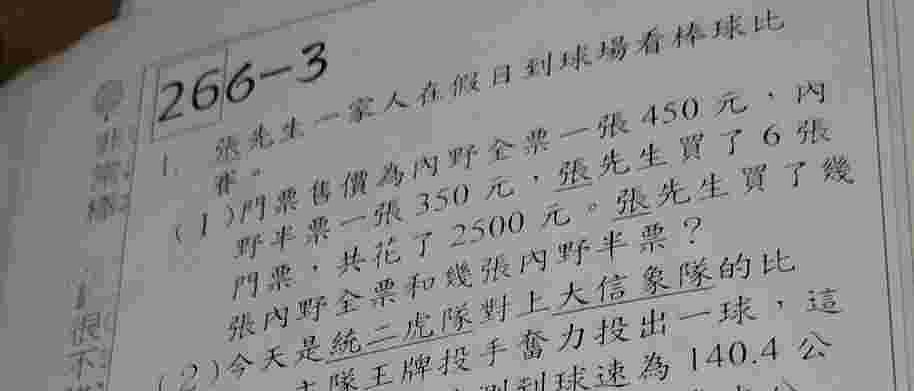 266-3
1. 張先生一家人在假日到球場看棒球比
賽。
(1)門票售價為內野全票一張450元,內
野半票一張350元,張先生買了6張
門票,共花了2500元。張先生買了幾
張內野全票和幾張內野半票?
(2)今天是統二虎隊對上大信象隊的比
隊王牌投手奮力投出一球,這
到球速為140.4公